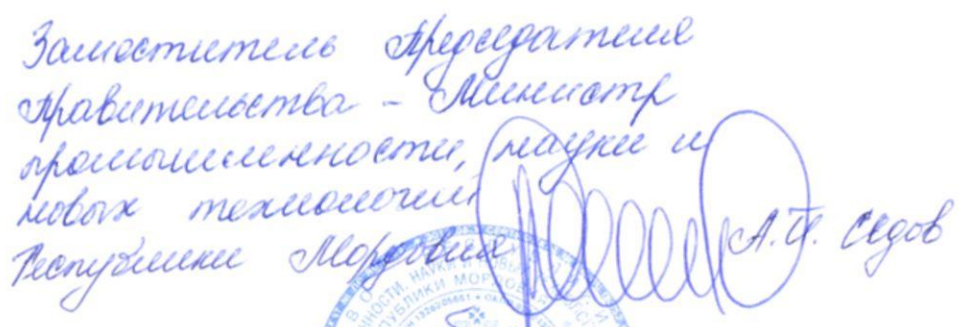 Заместитель Председателя
Правительства – Министр
промышленности, науки и
новых технологий
Республики Мордовия А.И. Седов
НОСТИ, НАУКИ И НОВЫХ
ПУБЛИКИ МОРДОВИЯ